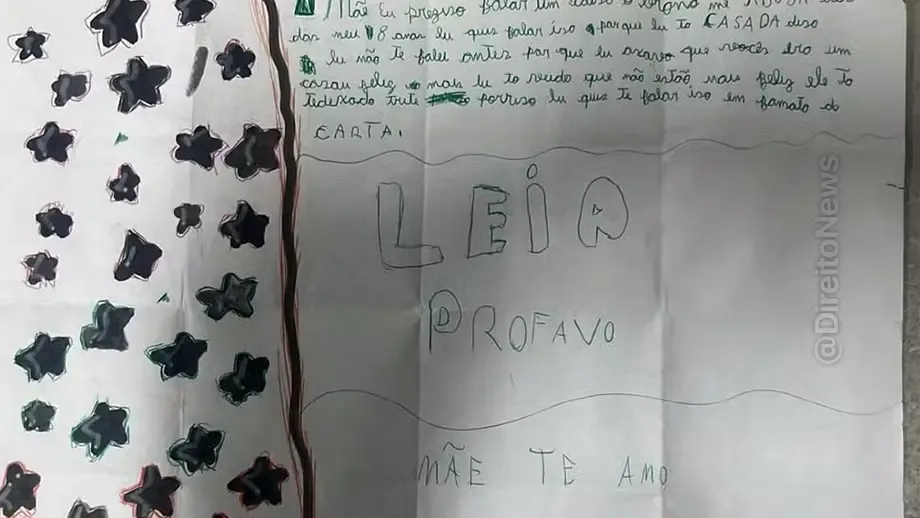 Mãe Eu preciso falar um
dos meu 8 anos Eu quis falar iso porque Eu to CASADA diso
Eu não te falei antes por que Eu axava que voces era um
casau feliz mais Eu to vendo que não estão mais feliz ele to
tedexado
porriso Eu quis te falar iso em famato de
CARTA.
LEIA
PROFAVO
MÃE TE AMO
@DireitoNews